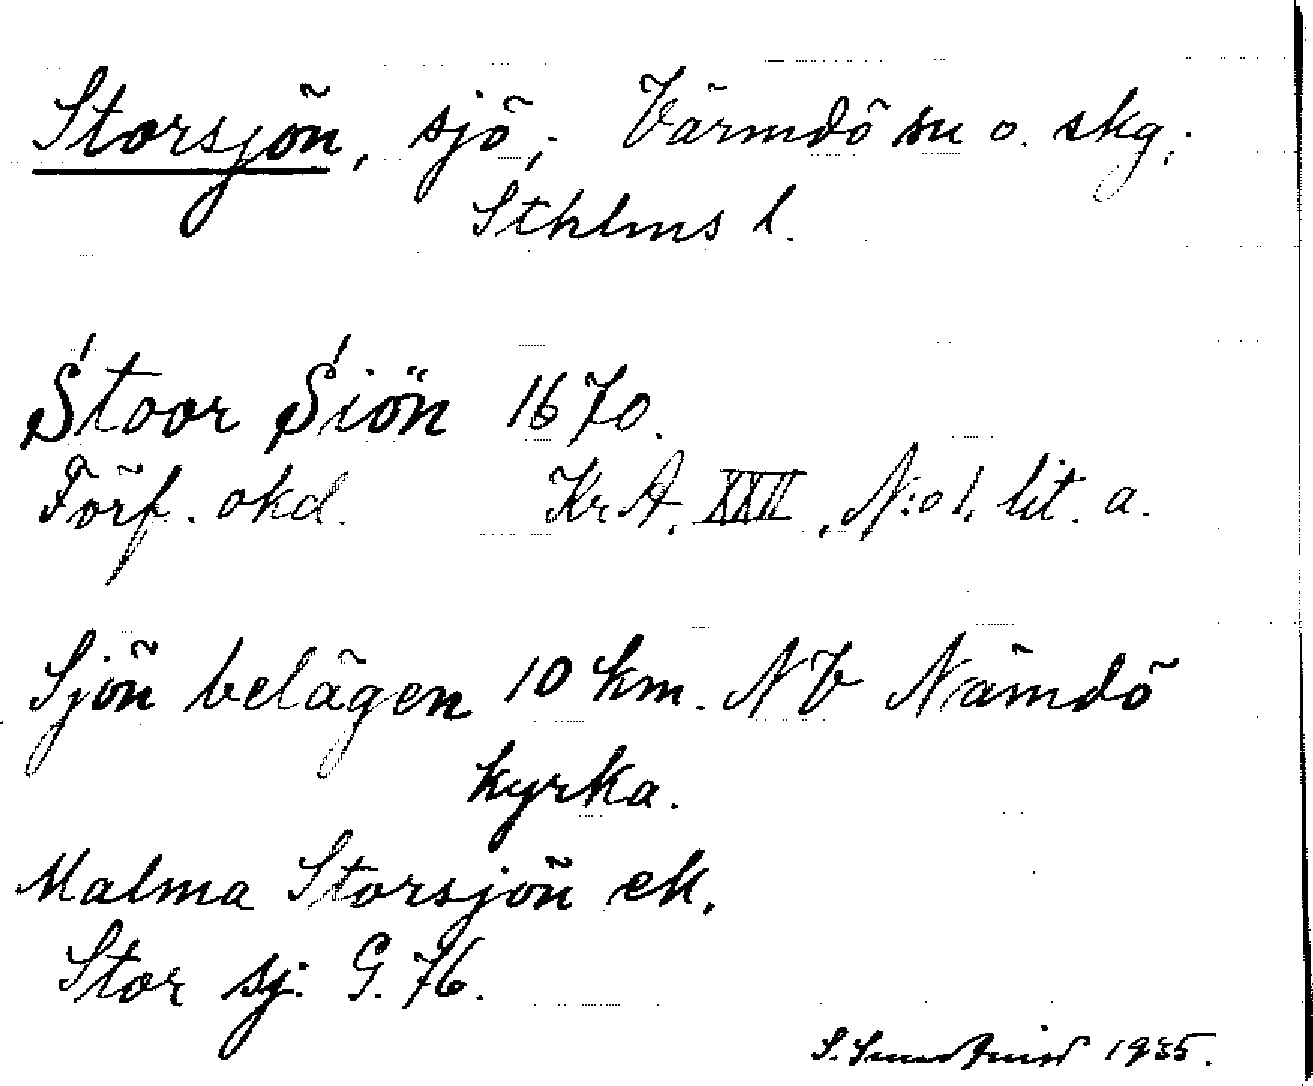 Storsjön, sjö; Värmdö sn o. skg;
Sthlms l.
Stoor Siön 1670.
Förf. okd. Kr. A. XXII, N:o 1, lit. a.
Sjön belägen 10 km. NV Nämdö
kyrka.
Malma Storsjön ek.
Stor sj. G. 76.
S. 1935.